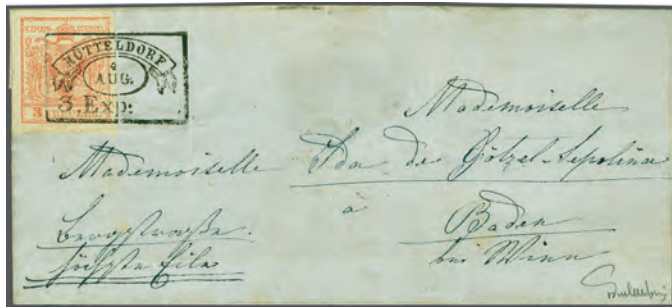 K.K.POST-STEMPEL
HÜTTELDORF
4
AUG.
3. Exp:
3
Mademoiselle
Mademoiselle Ida de Götzel-Lepolina
a
Baden
bei Wien
Bergstrasse.
höchste Eile